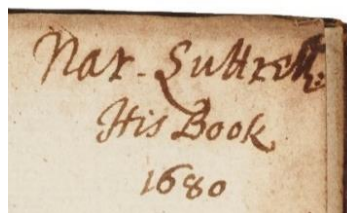 Nar. Luttrell:
His Book
1680